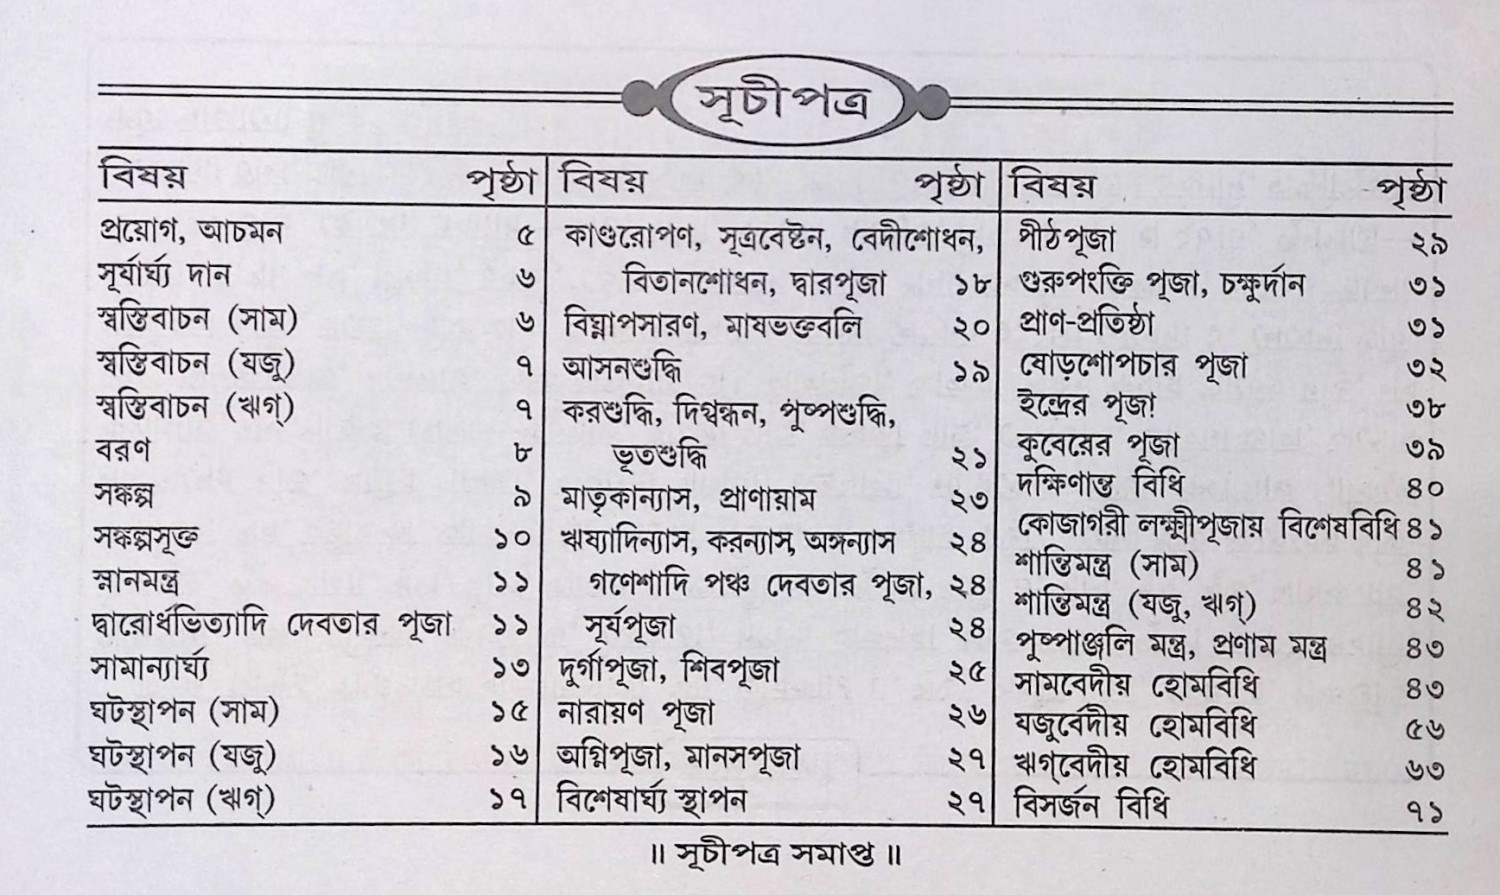 সূচীপত্র
বিষয় পৃষ্ঠা
প্রয়োগ, আচমন ৫
সূর্যার্ঘ্য দান ৬
স্বস্তিবাচন (সাম) ৬
স্বস্তিবাচন (যজু) ৭
স্বস্তিবাচন (ঋগ্) ৭
বরণ ৮
সঙ্কল্প ৯
সঙ্কল্পসূক্ত ১০
স্নানমন্ত্র ১১
দ্বারোর্ধভিত্যাদি দেবতার পূজা ১১
সামান্যার্ঘ্য ১৩
ঘটস্থাপন (সাম) ১৫
ঘটস্থাপন (যজু) ১৬
ঘটস্থাপন (ঋগ্) ১৭
বিষয় পৃষ্ঠা
কাণ্ডরোপণ, সূত্রবেষ্টন, বেদীশোধন,
বিতানশোধন, দ্বারপূজা ১৮
বিঘ্নাপসারণ, মাষভক্তবলি ২০
আসনশুদ্ধি ১৯
করশুদ্ধি, দিগ্বন্ধন, পুষ্পশুদ্ধি,
ভূতশুদ্ধি ২১
মাতৃকান্যাস, প্রাণায়াম ২৩
ঋষ্যাদিন্যাস, করন্যাস, অঙ্গন্যাস ২৪
গণেশাদি পঞ্চ দেবতার পূজা, ২৪
সূর্যপূজা ২৪
দুর্গাপূজা, শিবপূজা ২৫
নারায়ণ পূজা ২৬
অগ্নিপূজা, মানসপূজা ২৭
বিশেষার্ঘ্য স্থাপন ২৭
বিষয় পৃষ্ঠা
পীঠপূজা ২৯
গুরুপংক্তি পূজা, চক্ষুর্দান ৩১
প্রাণ-প্রতিষ্ঠা ৩১
ষোড়শোপচার পূজা ৩২
ইন্দ্রের পূজা ৩৮
কুবেরের পূজা ৩৯
দক্ষিণান্ত বিধি ৪০
কোজাগরী লক্ষ্মীপূজায় বিশেষবিধি ৪১
শান্তিমন্ত্র (সাম) ৪১
শান্তিমন্ত্র (যজু, ঋগ্) ৪২
পুষ্পাঞ্জলি মন্ত্র, প্রণাম মন্ত্র ৪৩
সামবেদীয় হোমবিধি ৪৩
যজুর্বেদীয় হোমবিধি ৫৬
ঋগ্‌বেদীয় হোমবিধি ৬৩
বিসর্জন বিধি ৭১
॥ সূচীপত্র সমাপ্ত ॥